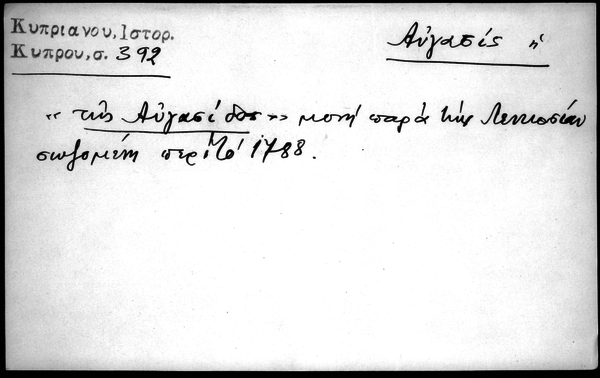 Κυπριανου, Ιστορ.
Κυπρου, σ. 392
Αὐγασίς ἡ
«τῆς Αὐγασίδος» μονὴ παρὰ τὴν Λευκωσίαν
σωζομένη περὶ τὸ 1788.